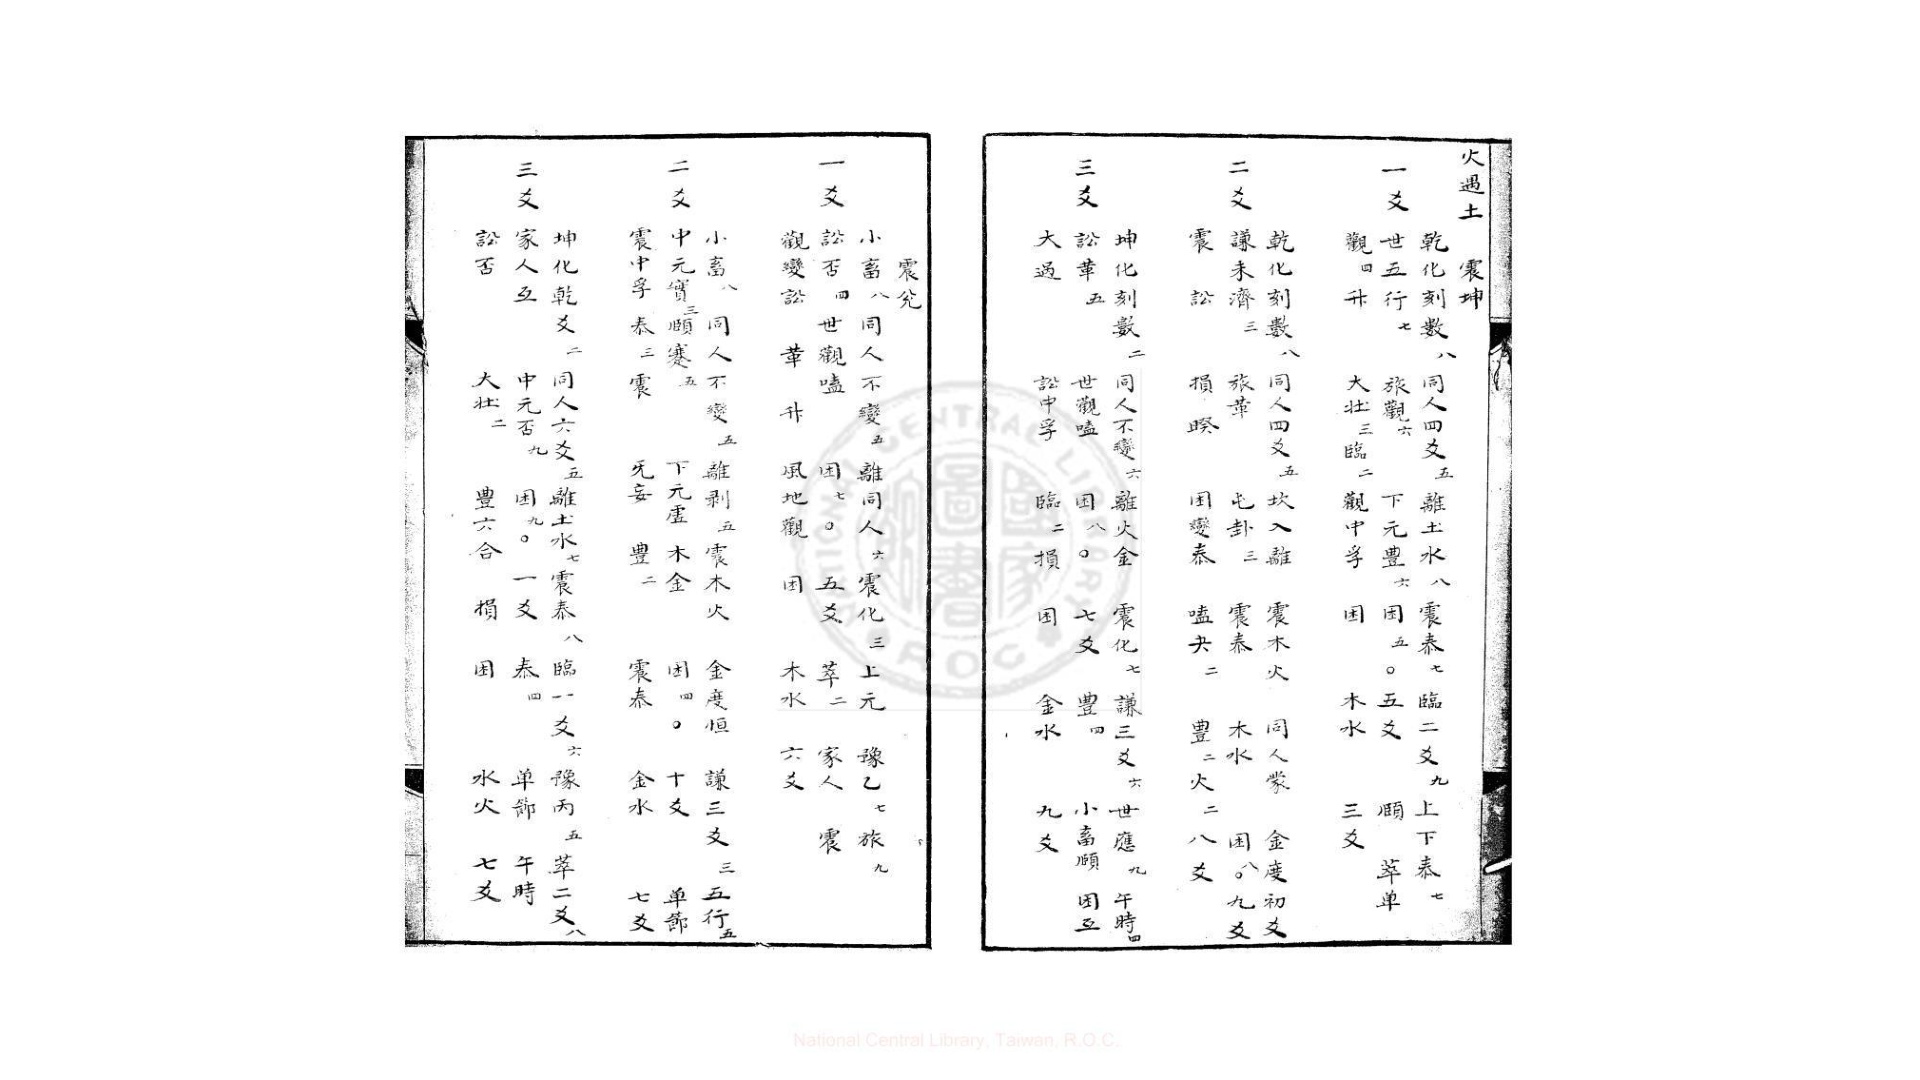 火遇土 震坤
一爻 乾化刻數八 同人四爻五 離土水八 震泰七 臨二爻九 上下泰七
世五行七 旅觀六 下元豊六 困五。 五爻 頤 萃单
觀四 升 大壮三 臨二 觀中孚 困 木水 三爻
二爻 乾化刻數八 同人四爻五 坎入離 震木火 同人蒙 金度初爻
謙未濟三 旅革 屯卦三 震泰 木水 困八。九爻
震 訟 損 睽 困變泰 嗑夬二 豊二 火二 八爻
三爻 坤化刻數二 同人不變六 離火金 震化七 謙三爻六 世應九 午時四
訟革五 世觀嗑 困八。 七爻 豊四 小畜頤 困互
大過 訟中孚 臨二 損 困 金水 九爻
震兌
一爻 小畜八 同人不變五 離同人六 震化三 上元 豫乙七 旅九
訟否四 世觀嗑 困七。 五爻 萃二 家人 震
觀變訟 革 升 風地觀 困 木水 六爻
二爻 小畜八 同人不變五 離剥五 震木火 金度恒 謙三爻三 五行五
中元實三 頤蹇五 下元虛 木金 困四。 十爻 单節
震中孚 泰三 震 旡妄 豊二 震泰 金水 七爻
三爻 坤化乾爻二 同人六爻五 離土水七 震泰八 臨一爻六 豫丙五 萃二爻八
家人互 中元否九 困九。 一爻 泰四 单節 午時
訟否 大壮二 豊六合 損 困 水火 七爻
National Central Library, Taiwan, R.O.C.